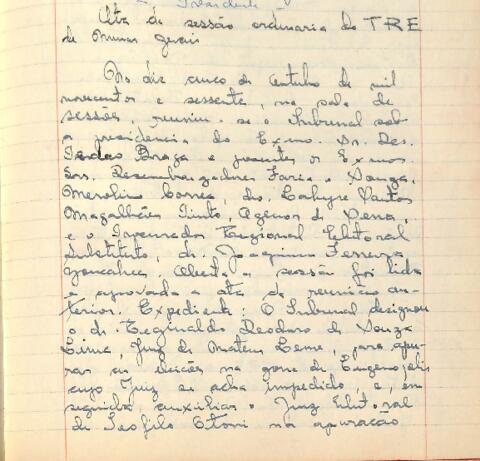 Presidente
Ata da sessão ordinaria do TRE
de Minas Gerais
No dia cinco de outubro de mil
novecentos e sessenta, na sala de
sessões, reuniu-se o Tribunal sob
a presidencia do Exmo. Sr. Des.
Braga e presentes os Exmos.
Srs. Desembargadores Faria e Souza,
Merolino Correa, drs. Santos
Magalhães Pinto, Agenor de Sena,
e o Procurador Regional Eleitoral
Substituto, dr. Joaquim Ferreira
Gonçalves. Aberta a sessão foi lida
e aprovada a ata da reunião an-
terior. Expediente: O Tribunal designou
o dr. Reginaldo Deodoro de Souza
Lima, Juiz de Mateus Leme, para apu-
rar as eleições na zona de Eugenópolis
cujo Juiz se acha impedido, e, em
seguida auxiliar o Juiz Eleitoral
de Teofilo Otoni na apuração